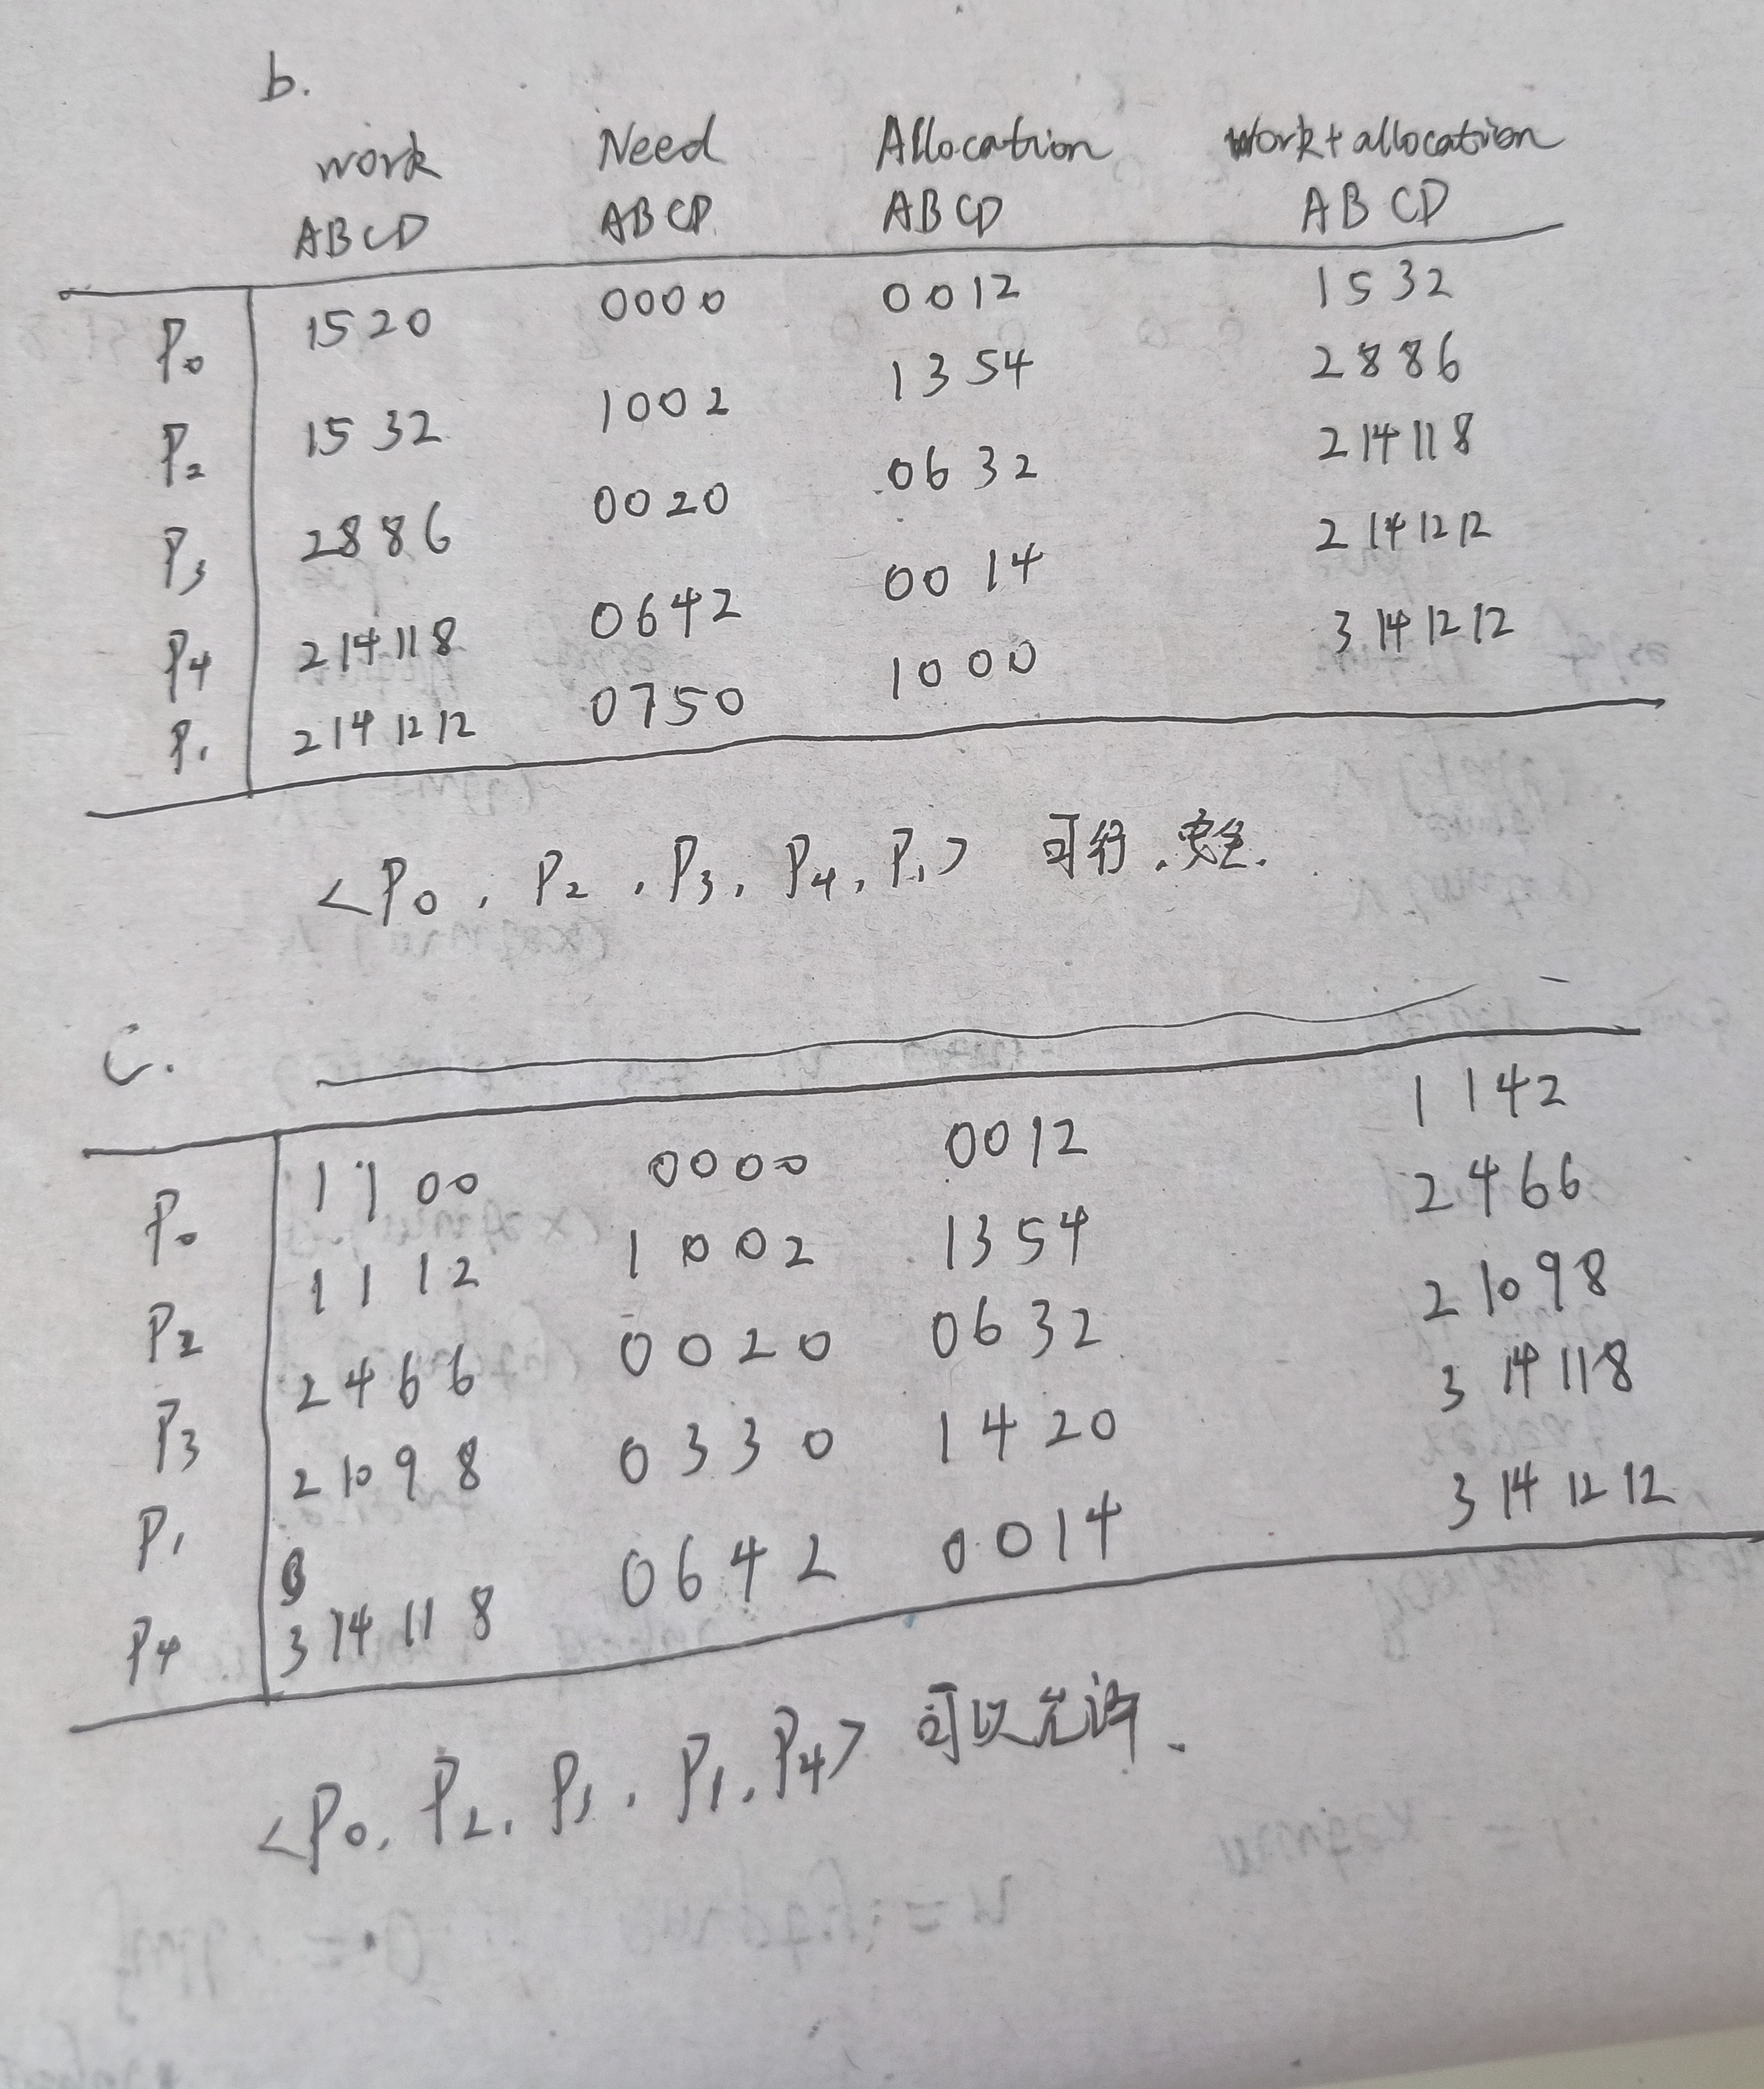 b.
work Need Allocation Work+allocation
ABCD ABCD ABCD ABCD
P0 1520 0000 0012 1532
P2 1532 1002 1354 2886
P3 2886 0020 0632 2 14 11 8
P4 2 14 11 8 0642 0014 2 14 12 12
P1 2 14 12 12 0750 1000 3 14 12 12
<P0, P2, P3, P4, P1> 可行.安全.
C.
P0 1100 0000 0012 1142
P2 1112 1002 1354 2466
P3 2466 0020 0632 2 10 9 8
P1 2 10 9 8 0330 1420 3 14 11 8
P4 3 14 11 8 0642 0014 3 14 12 12
<P0, P2, P3, P1, P4> 可以允许.